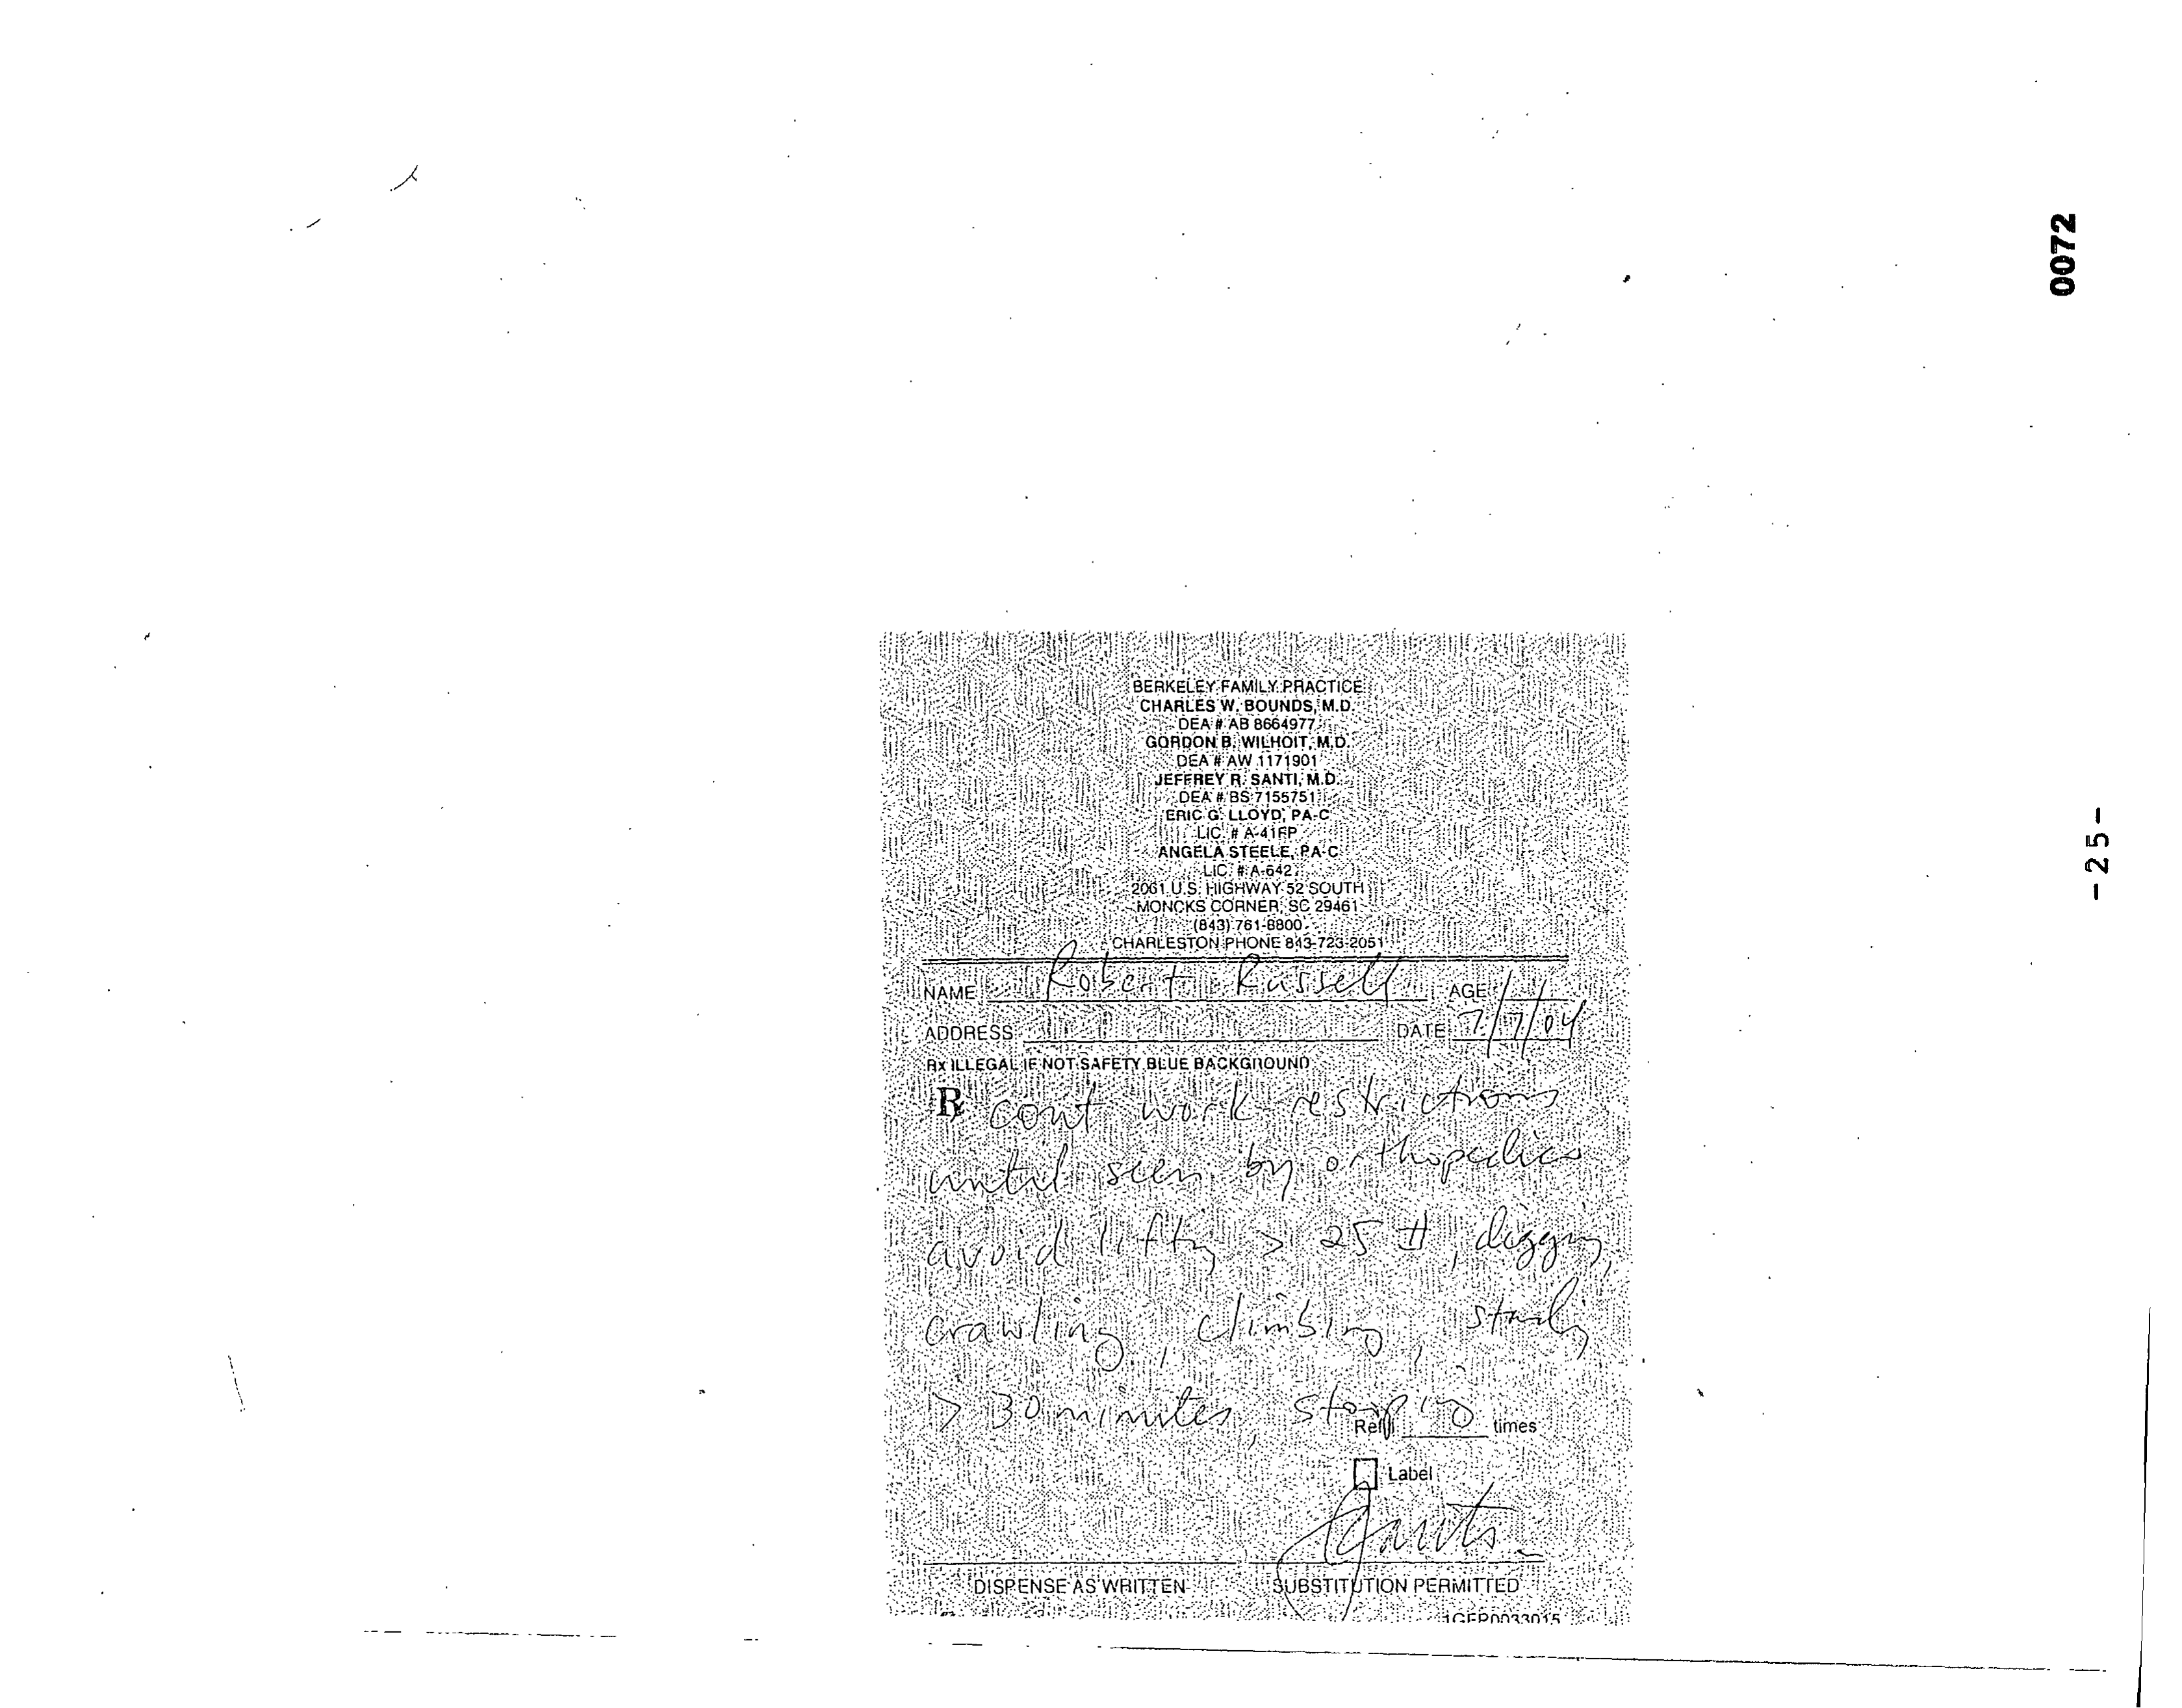 0072
-25-
BERKELEY FAMILY PRACTICE
CHARLES W. BOUNDS, M.D.
DEA # AB 8664977
GORDON B. WILHOIT, M.D.
DEA # AW 1171901
JEFFREY R. SANTI, M.D.
DEA # BS 7155751
ERIC G. LLOYD, PA-C
LIC. # A-41FP
ANGELA STEELE, PA-C
LIC. # A-642
2061 U.S. HIGHWAY 52 SOUTH
MONCKS CORNER, SC 29461
(843) 761-8800
CHARLESTON PHONE 843-723-2051
NAME Robert Russell AGE
ADDRESS DATE 7/7/04
Rx ILLEGAL IF NOT SAFETY BLUE BACKGROUND
Rx cont work restrictions
until seen by orthopedics
avoid lifting > 25 #, digging,
crawling, climbing, standing
> 30 minutes, stooping
Refill times
Label
DISPENSE AS WRITTEN SUBSTITUTION PERMITTED
1GFP0033015